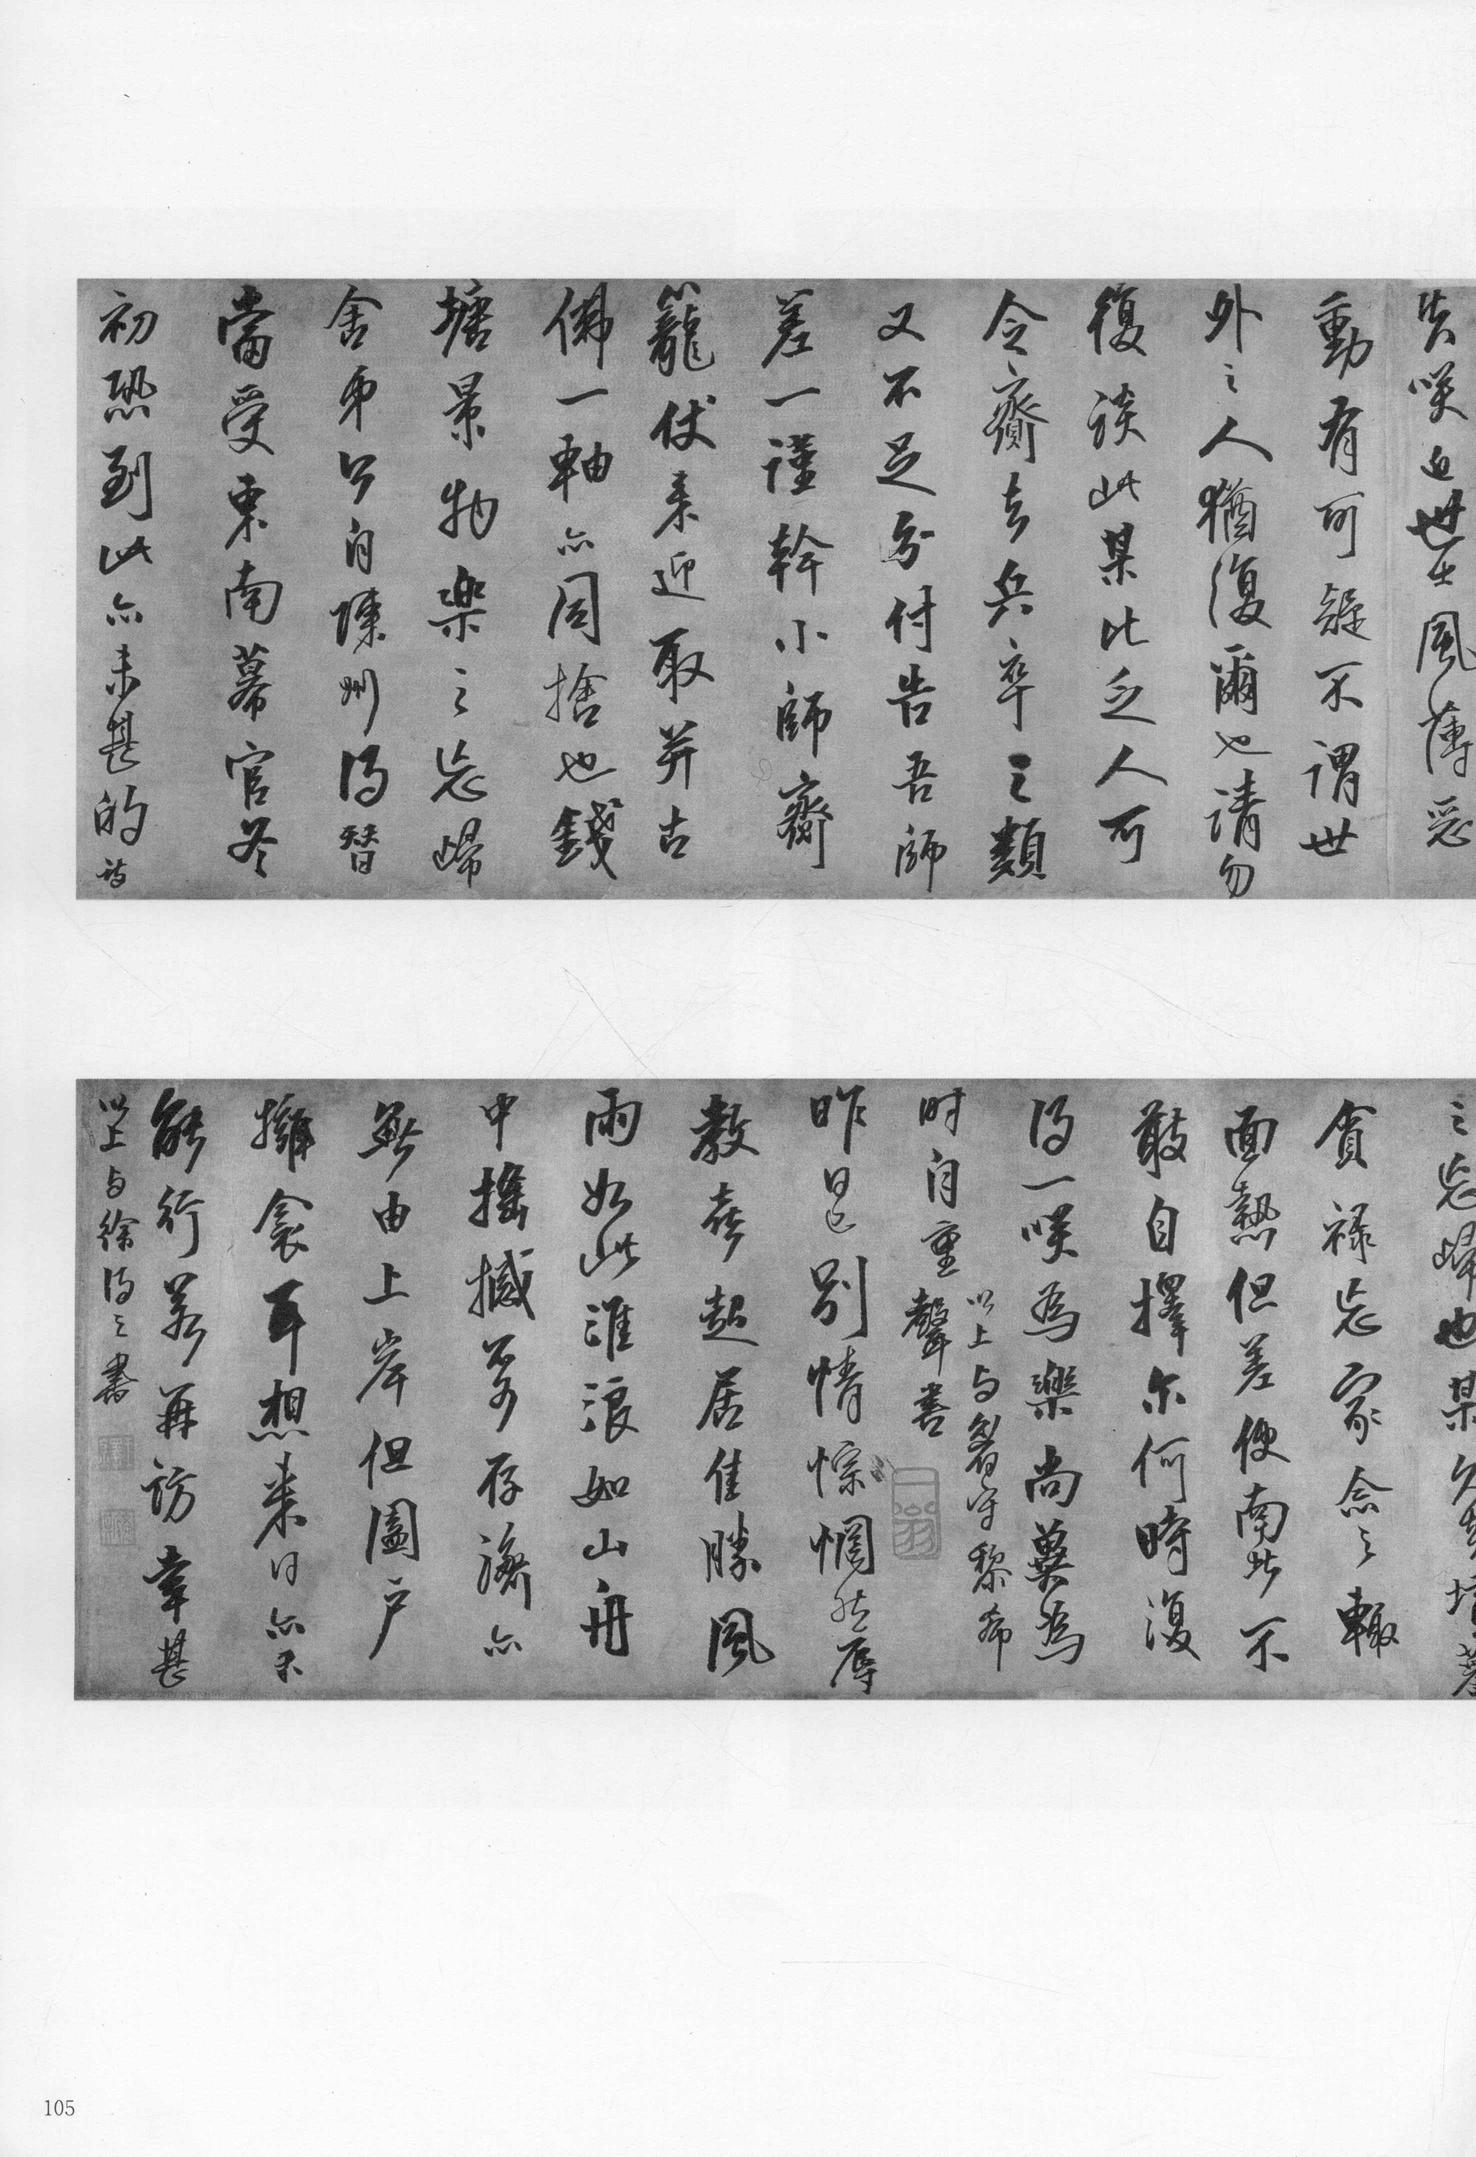 失笑近世士風薄惡
動有可疑不謂世
外之人猶復爾也請勿
復談此某比乏人可
令齎去兵卒之類
又不足分付告吾師
差一謹幹小師齎
籠仗来迎取并古
佛一軸亦同捨也錢
塘景物樂之忘歸
舍弟今自陳州得替
當受東南幕官冬
初恐到此亦未甚的詩
之忘歸也某久去墳墓
貪祿忘家念之輙
面熱但差使南北不
敢自擇尔何時復
得一笑為樂尚冀為
时自重 以上与眉守黎希
聲書
昨日已別情悰惘然辱
教喜起居佳勝風
雨如此淮浪如山舟
中搖撼不可存濟亦
無由上岸但闔戶
擁衾耳想来日亦未
能行若再訪幸甚
以上与徐得之書
105